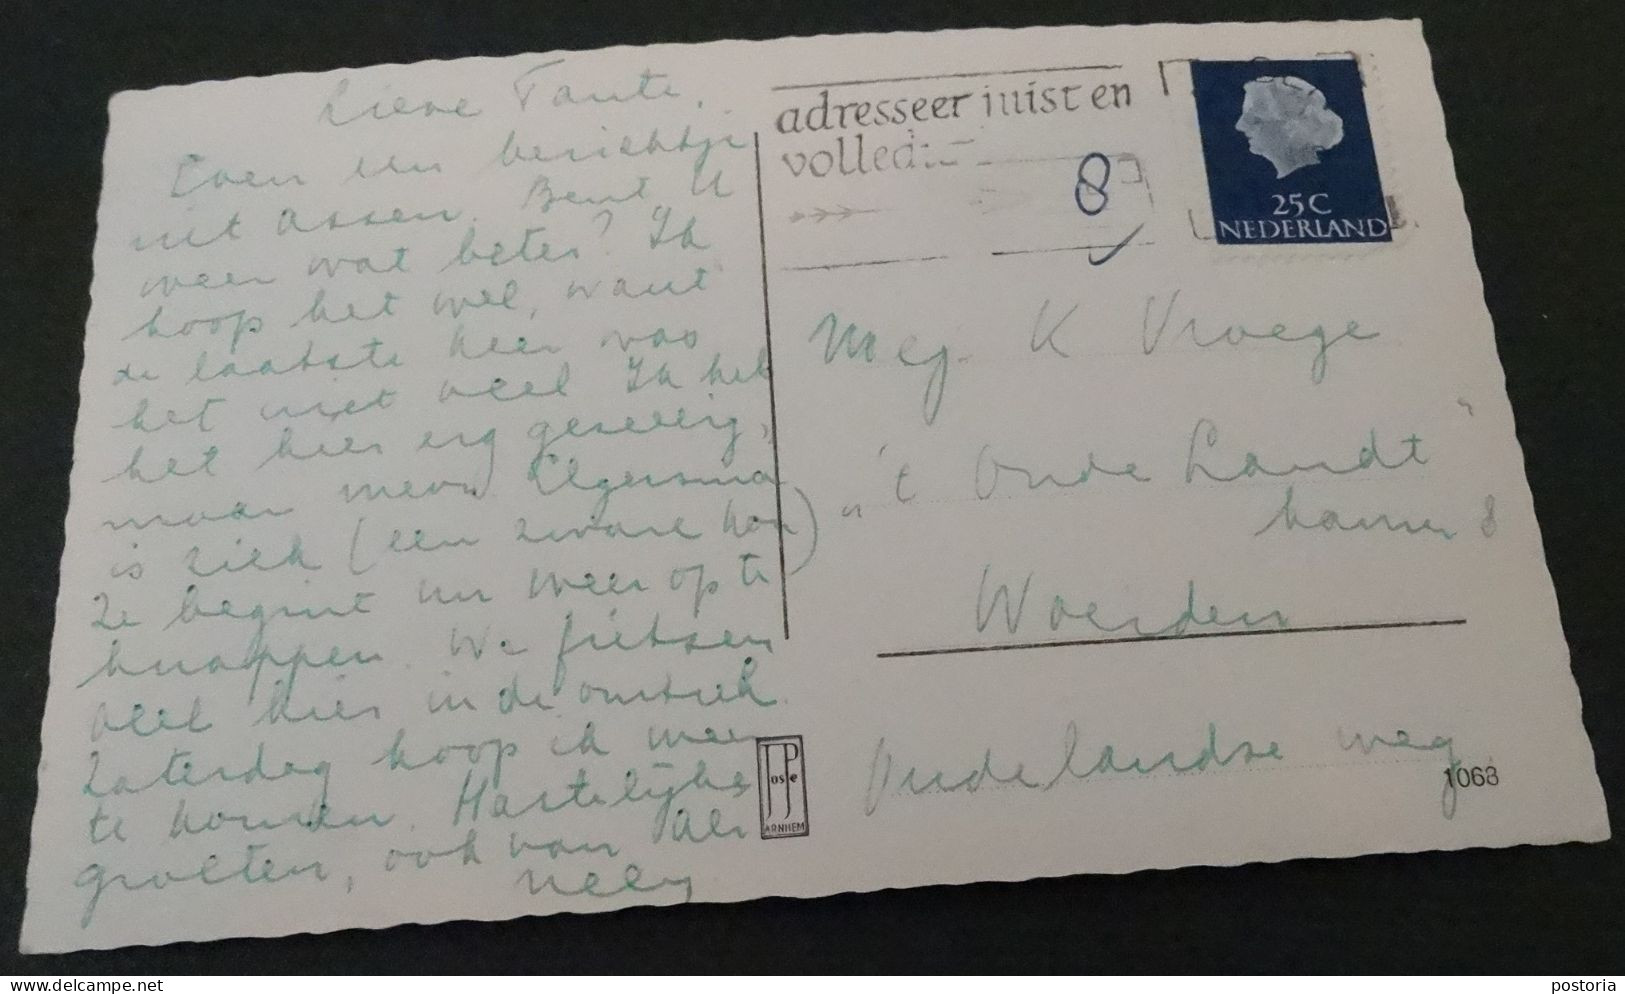 Lieve Tante,
Even een berichtje
uit Assen. Bent U
weer wat beter? Ik
hoop het wel, want
de laatste keer was
het niet veel. Ik heb
het hier erg gezellig,
maar mevr. Elgersma
is ziek (een zware kou)
Ze begint nu weer op te
knappen. We fietsen
veel hier in de omtrek.
Zaterdag hoop ik weer
te komen. Hartelijke
groeten, ook van
Nelly
adresseer juist en
volled
8
25 C
NEDERLAND
Mej. K Vroege
"'t Oude Landt"
kamer 8
Woerden
Oudelandse weg
JosPe
ARNHEM
1063
postoria